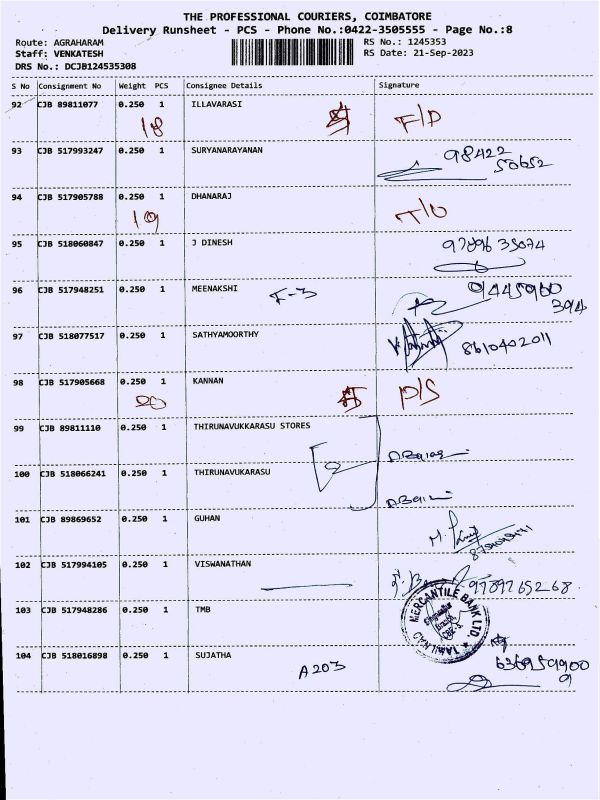 THE PROFESSIONAL COURIERS, COIMBATORE
Delivery Runsheet - PCS - Phone No.:0422-3505555 - Page No.:8
Route: AGRAHARAM RS No.: 1245353
Staff: VENKATESH RS Date: 21-Sep-2023
DRS No.: DCJB124535308
S No Consignment No Weight PCS Consignee Details Signature
92 CJB 89811077 0.250 1 ILLAVARASI
18
93 CJB 517993247 0.250 1 SURYANARAYANAN 98422
50652
94 CJB 517905788 0.250 1 DHANARAJ
19
95 CJB 518060847 0.250 1 J DINESH
96 CJB 517948251 0.250 1 MEENAKSHI F-3 9445900
394
97 CJB 518077517 0.250 1 SATHYAMOORTHY 8610402011
98 CJB 517905668 0.250 1 KANNAN
20 D/S
99 CJB 89811110 0.250 1 THIRUNAVUKKARASU STORES
100 CJB 518066241 0.250 1 THIRUNAVUKARASU
101 CJB 89869652 0.250 1 GUHAN
102 CJB 517994105 0.250 1 VISWANATHAN 9789765268
103 CJB 517948286 0.250 1 TMB
TAMILNAD MERCANTILE BANK LTD.
104 CJB 518016898 0.250 1 SUJATHA A203